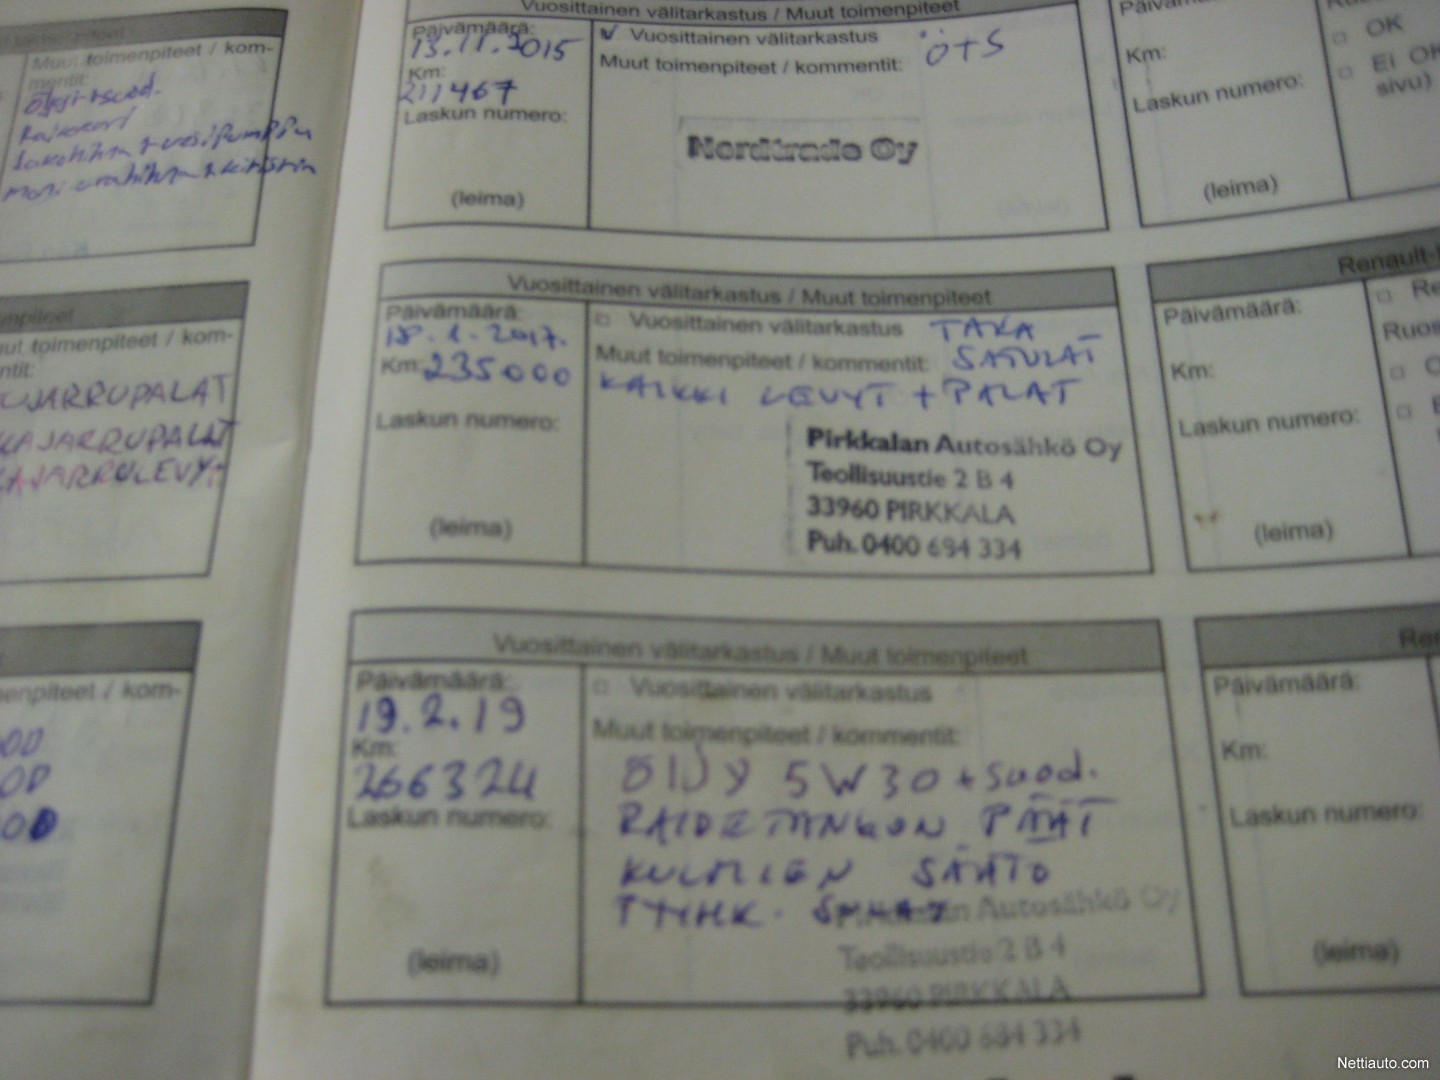 Muut toimenpiteet / kom-
mentit:
Öljyt+suod.
Jakohihna + vesipumppu
moniurahihna + kiristin
toimenpiteet / kom-
JARRUPALAT
KAJARRUPALAT
KAJARRULEVYT
toimenpiteet / kom-
Vuosittainen välitarkastus / Muut toimenpiteet
Päivämäärä:
13.11.2015
Km:
211467
Laskun numero:
(leima)
Vuosittainen välitarkastus
Muut toimenpiteet / kommentit: Ö+S
Nordtrade Oy
Km:
Laskun numero:
(leima)
OK
Ei OK
sivu)
Vuosittainen välitarkastus / Muut toimenpiteet
Päivämäärä:
18.1.2017.
Km: 235000
Laskun numero:
(leima)
Vuosittainen välitarkastus TAKA
Muut toimenpiteet / kommentit: SATULAT
KAIKKI LEVYT + PALAT
Pirkkalan Autosähkö Oy
Teollisuustie 2 B 4
33960 PIRKKALA
Puh. 0400 694 334
Renault-
Päivämäärä:
Km:
Laskun numero:
(leima)
Re
Ruos
Vuosittainen välitarkastus / Muut toimenpiteet
Päivämäärä:
19.2.19
Km:
266324
Laskun numero:
(leima)
Vuosittainen välitarkastus
Muut toimenpiteet / kommentit:
ÖljY 5W30 + Suod.
RAIDETANGON PÄÄT
KULMIEN SÄÄTÖ
Autosähkö Oy
Teollisuustie 2 B 4
33960 PIRKKALA
Puh. 0400 694 334
Päivämäärä:
Km:
Laskun numero:
(leima)
Nettiauto.com